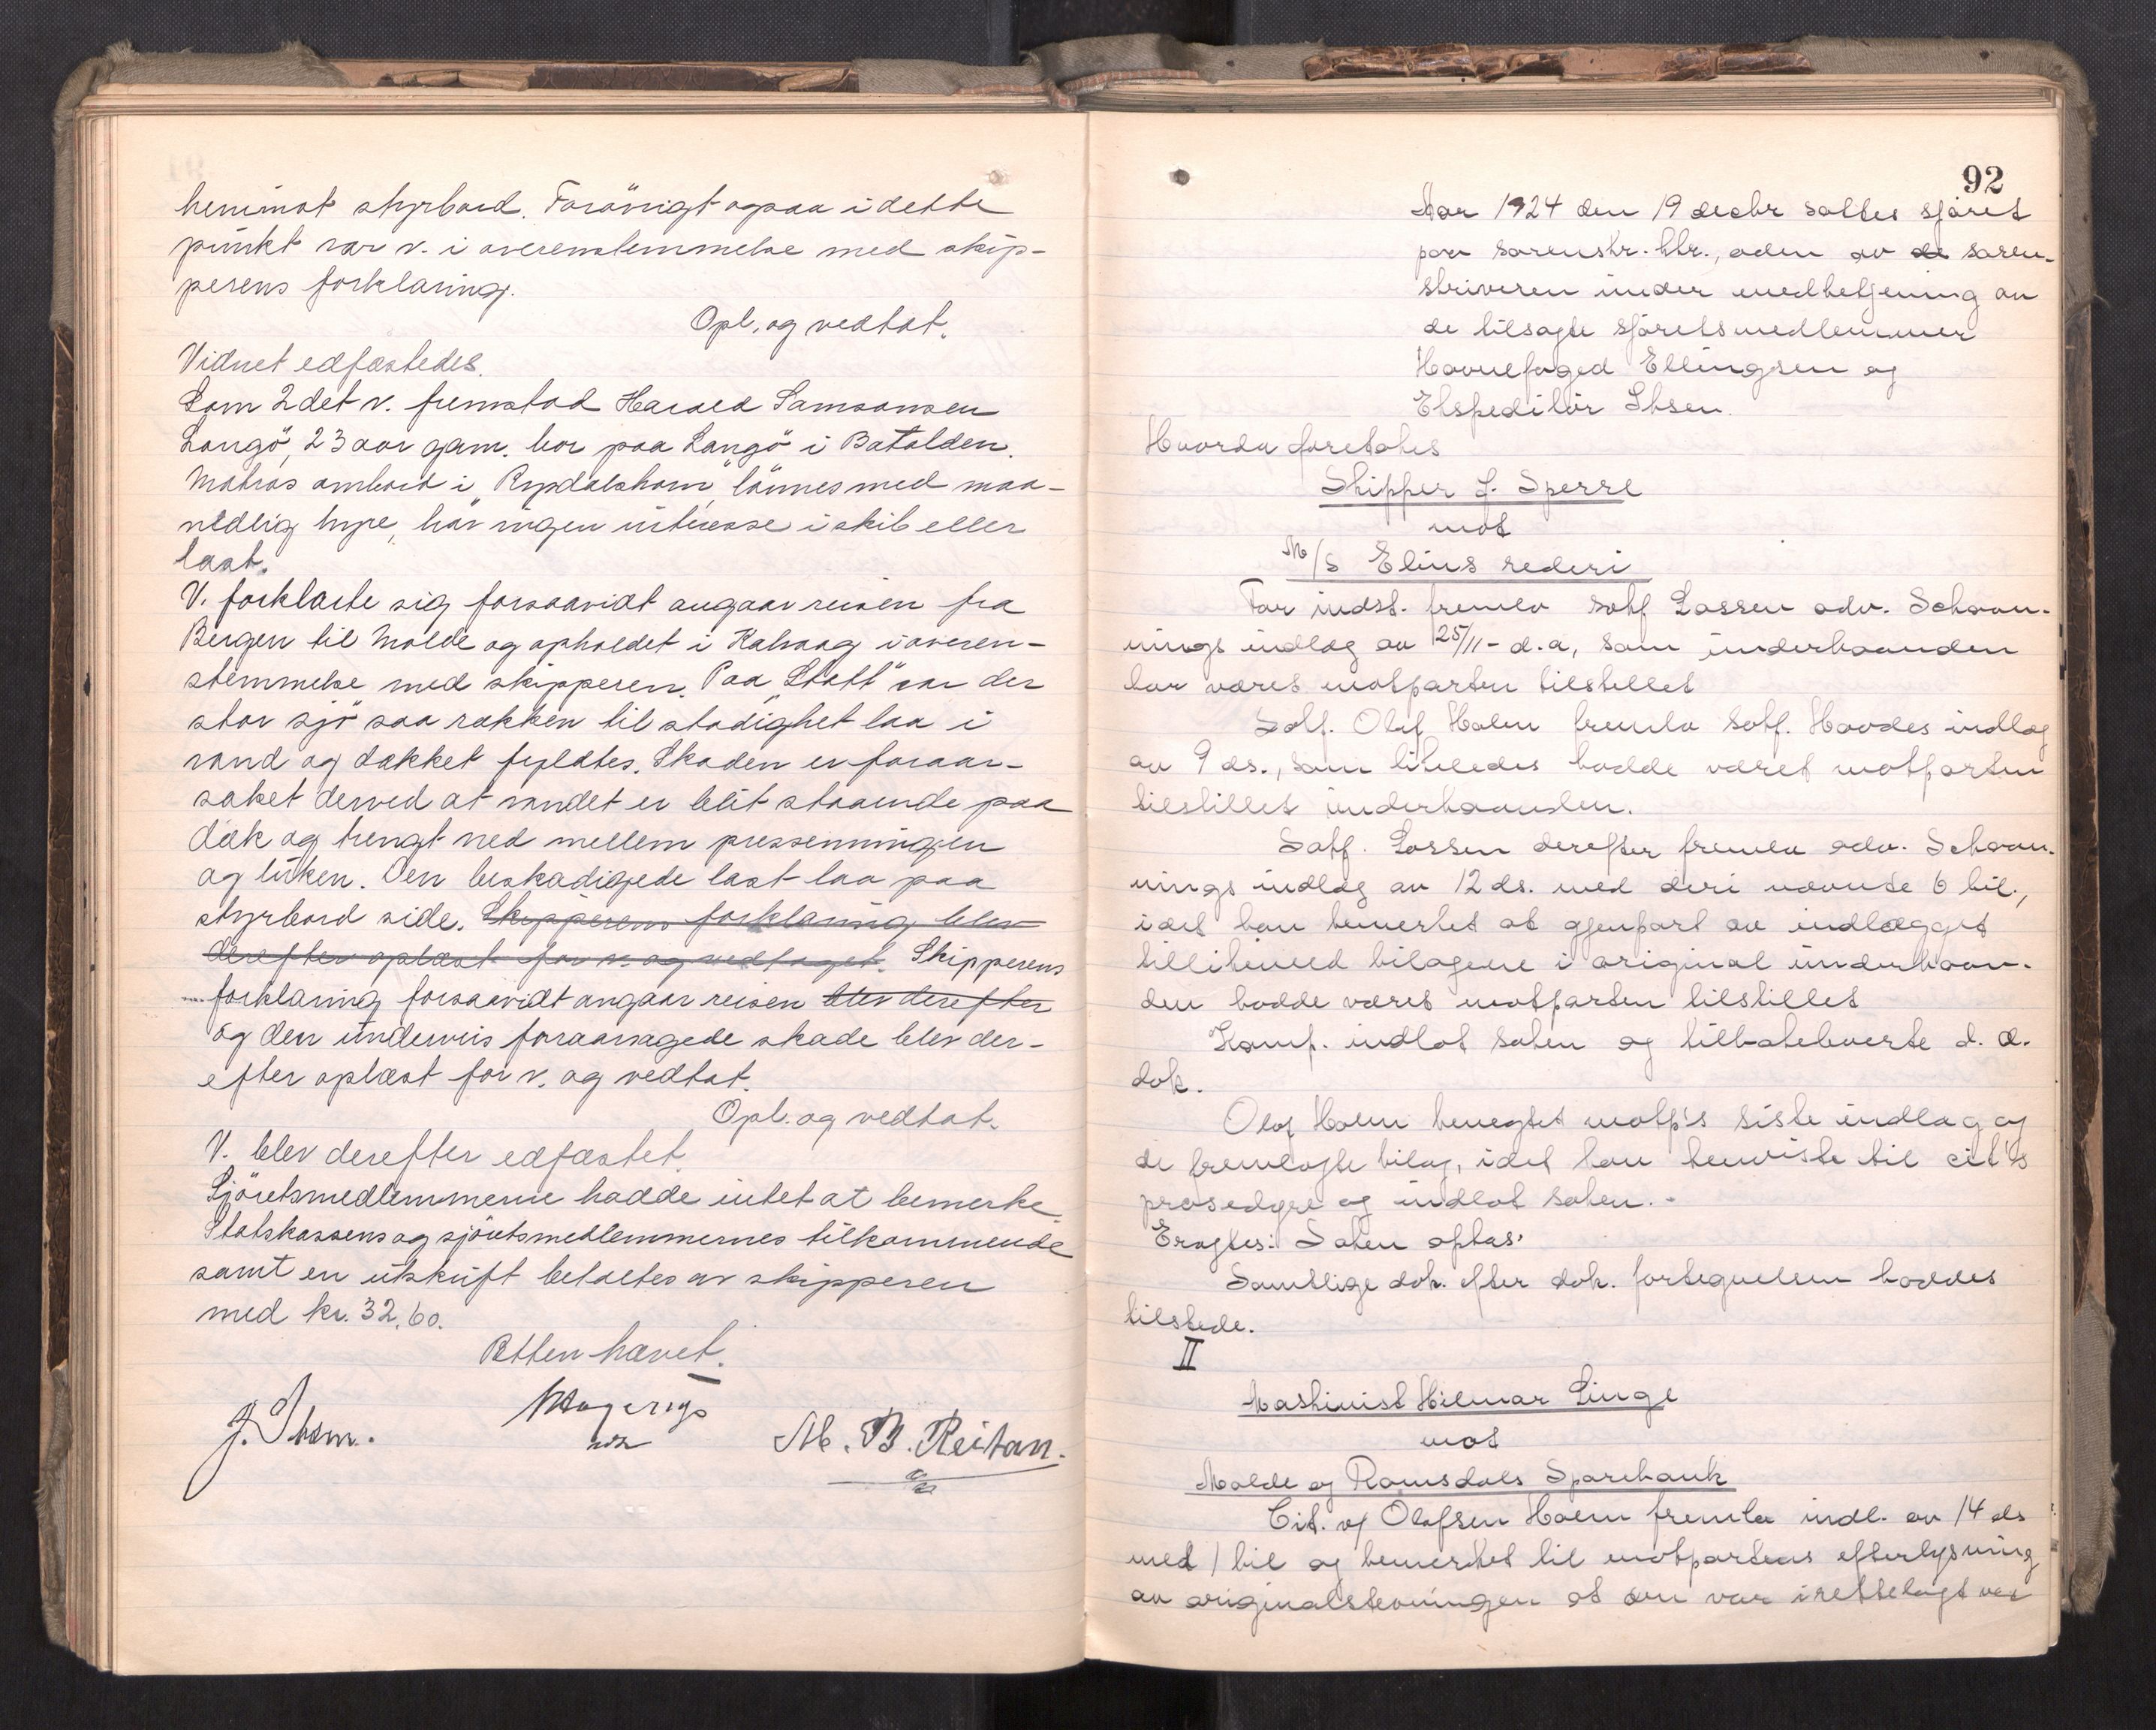 henimot styrbord. Forövrigt ogsaa i dette
punkt var v. i overensstemmelse med skip-
perens forklaring.
Opl. og vedtat.
Vidnet edfæstedes.
Som 2det v. fremstod Harald Samsonsen
Langö, 23 aar gam. bor paa Langö i Batalden.
Matros ombord i "Rypdalsham" lönnes med maa-
nedlig hyre, har ingen interesse i skib eller
last.
V. forklarte sig forsaavidt angaar reisen fra
Bergen til Molde og opholdet i Kalvaag i overen-
stemmelse med skipperen. Paa "Statt" var der
stor sjö saa rækken til stadighet laa i
vand og dækket fyldtes. Skaden er foraar-
saket derved at vandet er blit staaende paa
dæk og trengt ned mellem presenningen
og luken. Den beskadigede last laa paa
styrbord side. Skipperens forklaring blev
derefter oplæst for v. og vedtaget. Skipperens
forklaring forsaavidt angaar reisen blev derefter
og den underveis foraarsagede skade blev der-
efter oplæst for v. og vedtat.
Opl. og vedtat.
V. blev derefter edfæstet.
Sjöretsmedlemmerne hadde intet at bemerke.
Statskassens og sjöretsmedlemmernes tilkommende
samt en utskrift betaltes av skipperen
med kr. 32.60.
Retten hævet.
M. B. Reitan.
92
Aar 1924 den 19 decbr sattes sjöret
paa sorenskr. ktr., aden av de soren-
skriveren under medbetjening av
de tilsagte sjöretsmedlemmer
Havnefoged Ellingsen og
Ekspeditör Ibsen.
Hvorda foretokes
Skipper J. Sperre
mot
M/S Elins rederi
For indst. fremla sakf Lossen adv. Schaan-
nings indlæg av 25/11 - d.a, som underhaanden
har været motparten tilstillet
Sakf. Olaf Holm fremla sakf. Hovdes indlæg
av 9 ds., som likeledes hadde været motparten
tilstillet underhaanden.
Sakf. Lossen derefter fremla adv. Schaan-
nings indlæg av 12 ds. med deri nævnte 6 bil.,
idet han bemerket at gjenpart av indlægget
tillikemed bilagene i original underhaan-
den hadde været motparten tilstillet
Komp. indlot saken og tilbakeleverte d. a.
dok.
Olaf Holm benegtet motp's siste indlæg og
de fremlagte bilag, idet han henviste til cit's
prosedyre og indlot saken. -
Eragtes: Saken optas.
Samtlige dok. efter dok. fortegnelsen haddes
tilstede.
II
Maskinist Hilmar Linge
mot
Molde og Romsdals Sparebank
Cit. v/ Olafsen Holm fremla indl. av 14 ds
med 1 bil og bemerket til motpartens efterlysning
av originalstevningen at den var i rettelagt ved